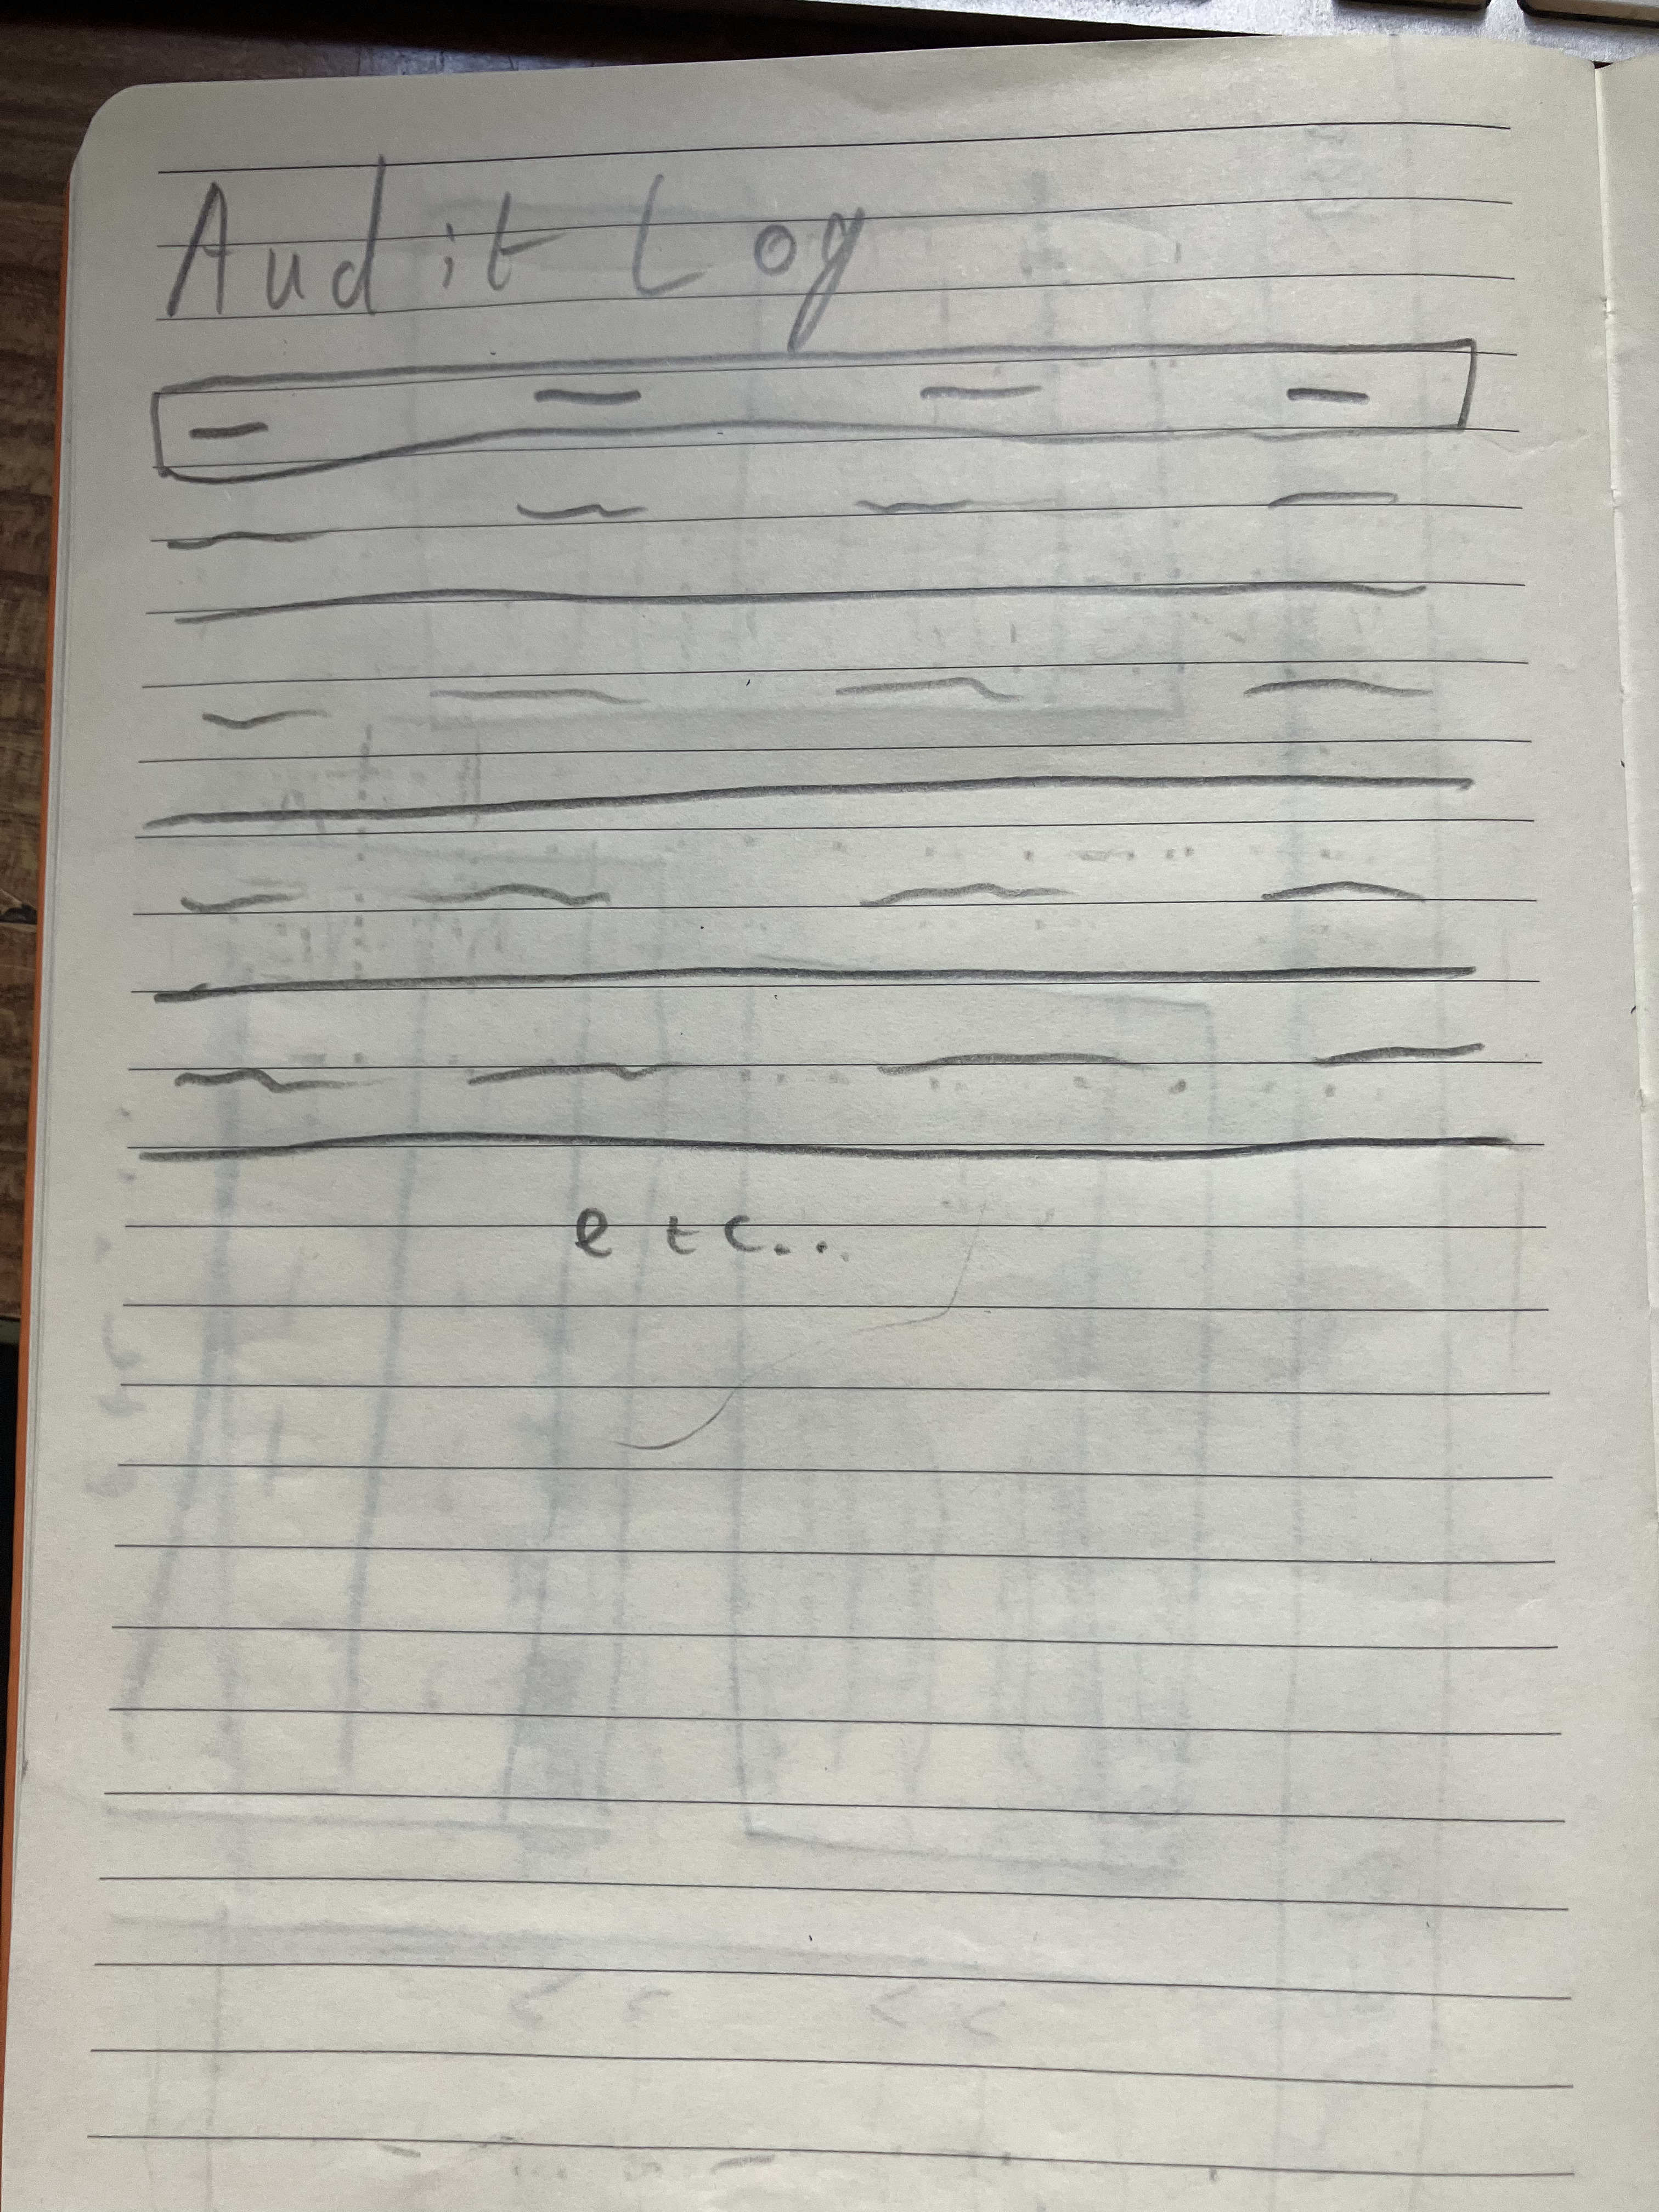 Audit Log
etc...